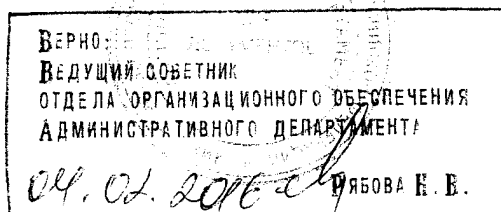 ВЕРНО:
ВЕДУЩИЙ СОВЕТНИК
ОТДЕЛА ОРГАНИЗАЦИОННОГО ОБЕСПЕЧЕНИЯ
АДМИНИСТРАТИВНОГО ДЕПАРТАМЕНТА
04.02.2016 РЯБОВА Н. В.